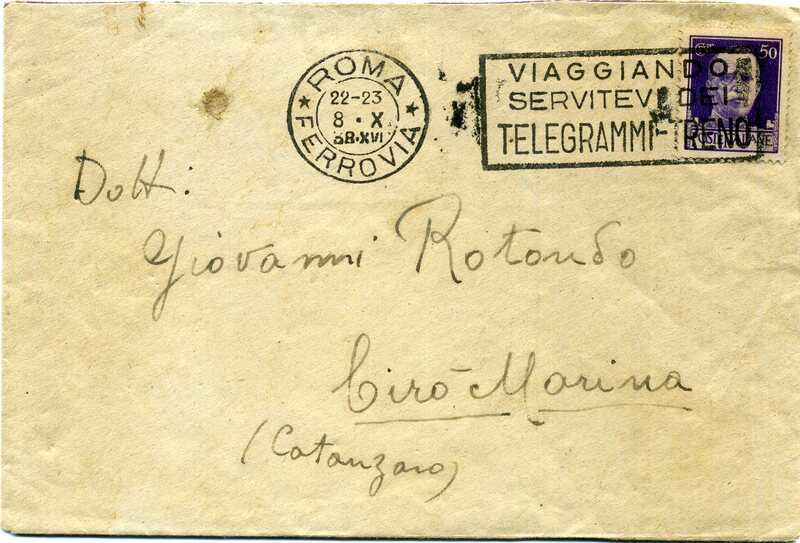 ROMA
22-23
8 · X
38·XVI
FERROVIA
VIAGGIANDO
SERVITEVI DEI
TELEGRAMMI-TRENO
CT. 50
POSTE ITALIANE
Dott:
Giovanni Rotondo
Cirò-Marina
(Catanzaro)